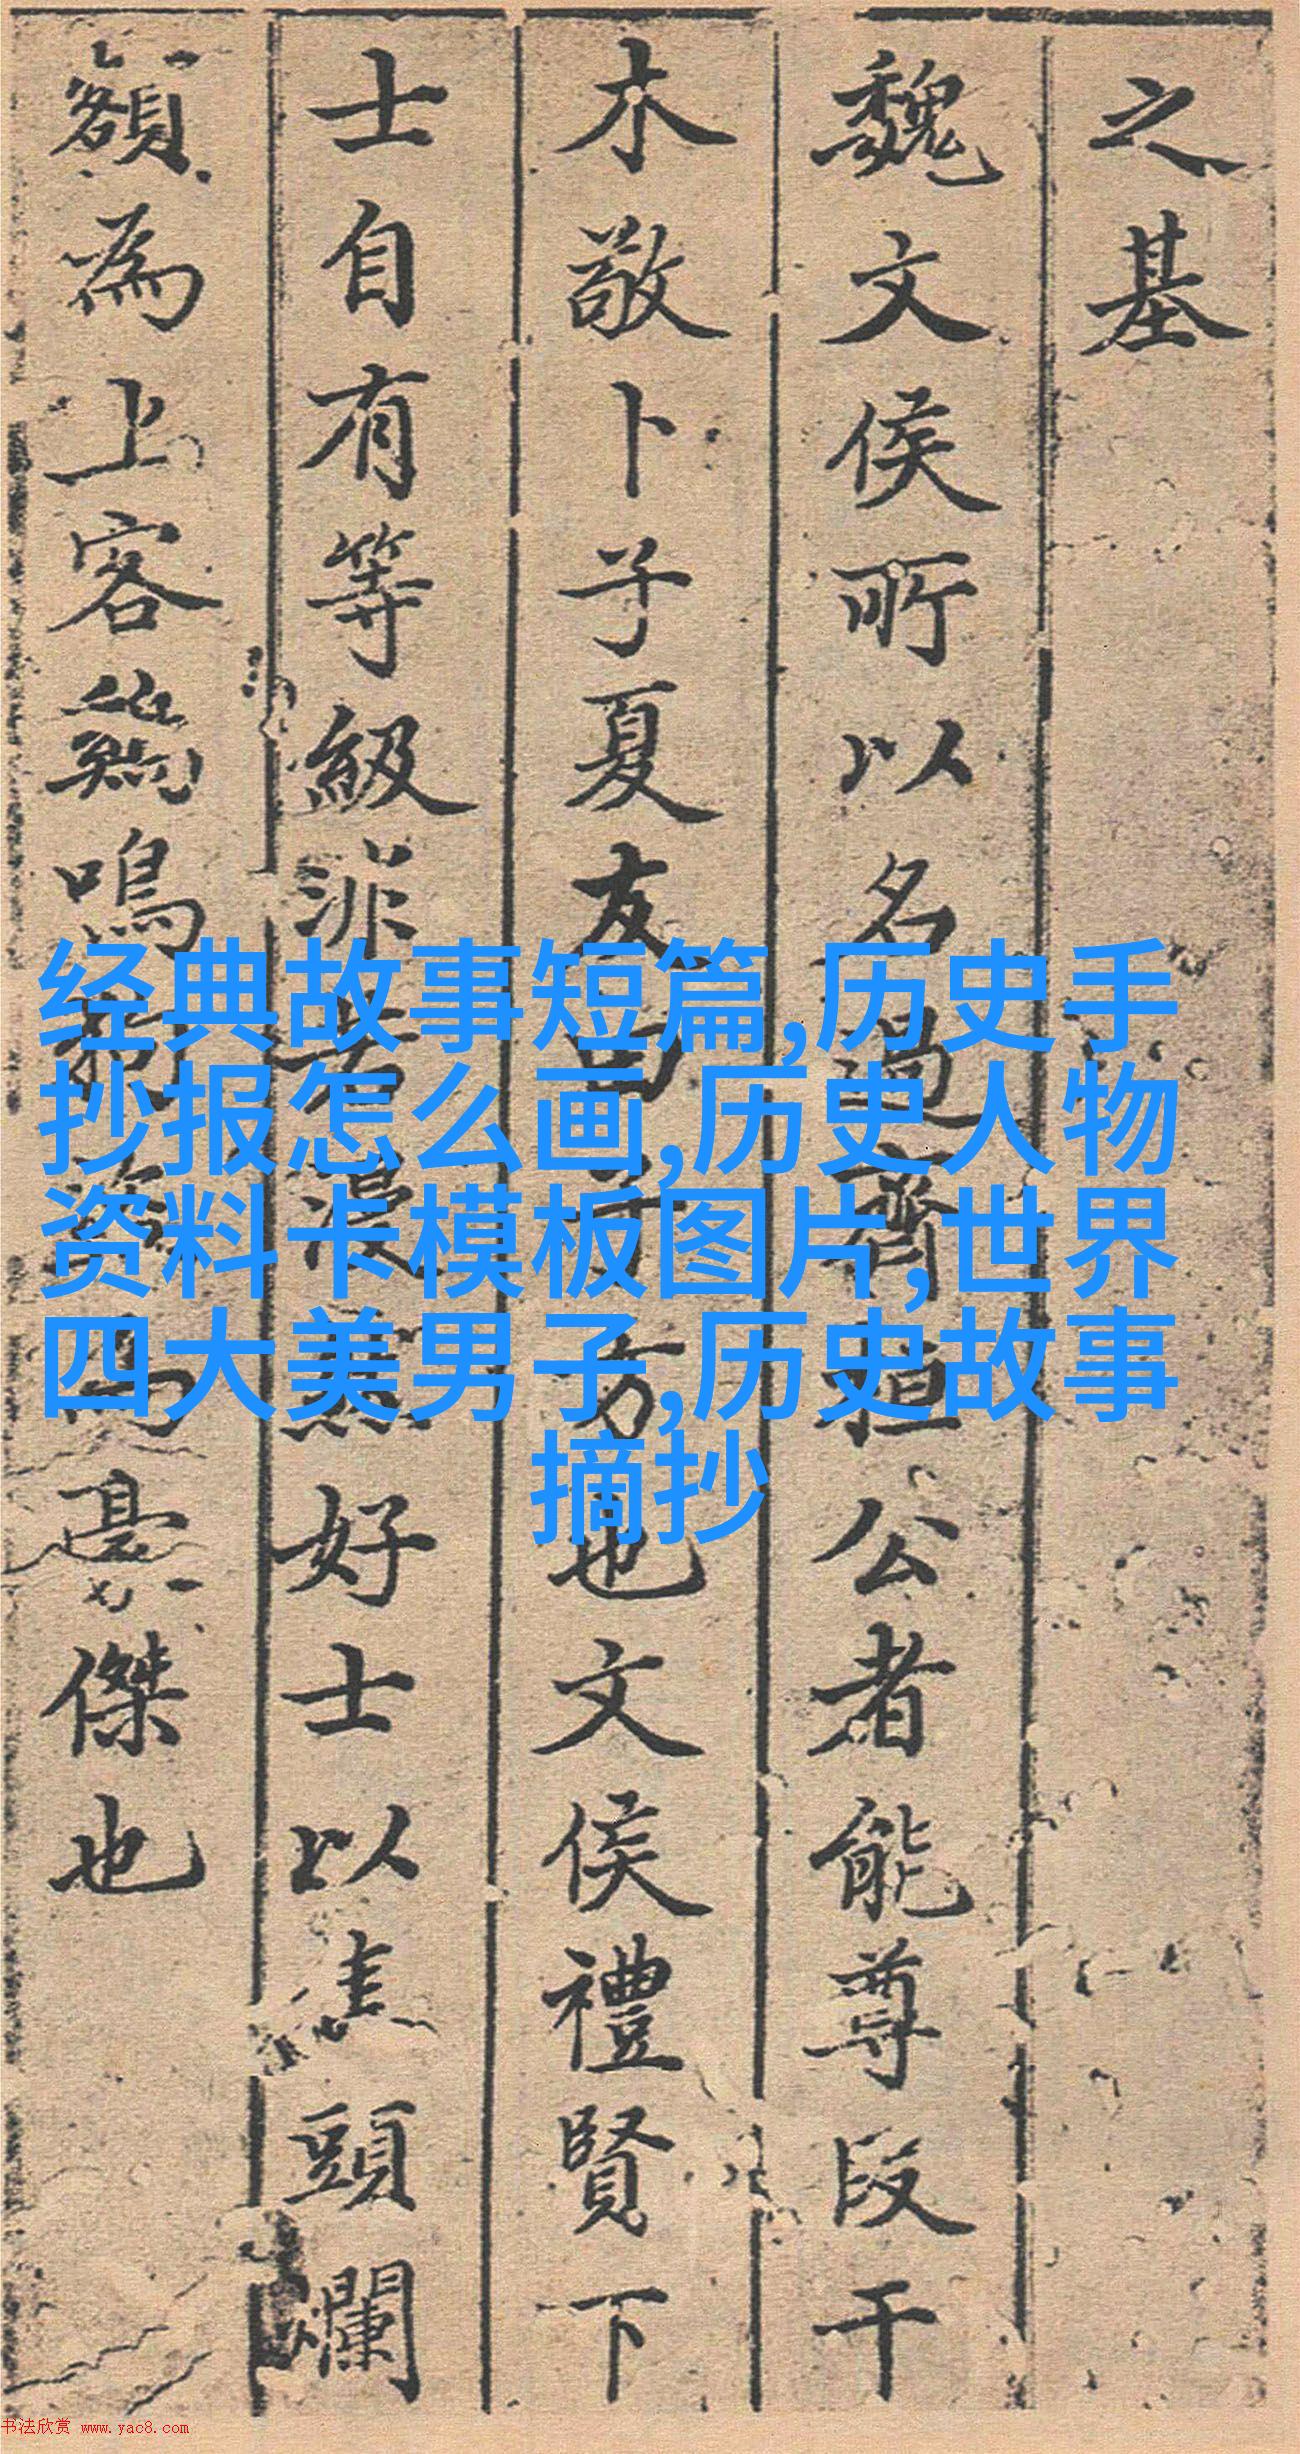 之基
魏文侯所以名過齊桓公者能尊段干
木敬卜子夏友田子方也文侯禮賢下
士自有等級非若漫好士以焦頭爛
額為上客雞鳴狗盜為豪傑也
经典故事短篇,历史手
抄报怎么画,历史人物
资料卡模板图片,世界
四大美男子,历史故事
摘抄
书法欣赏 www.yac8.com